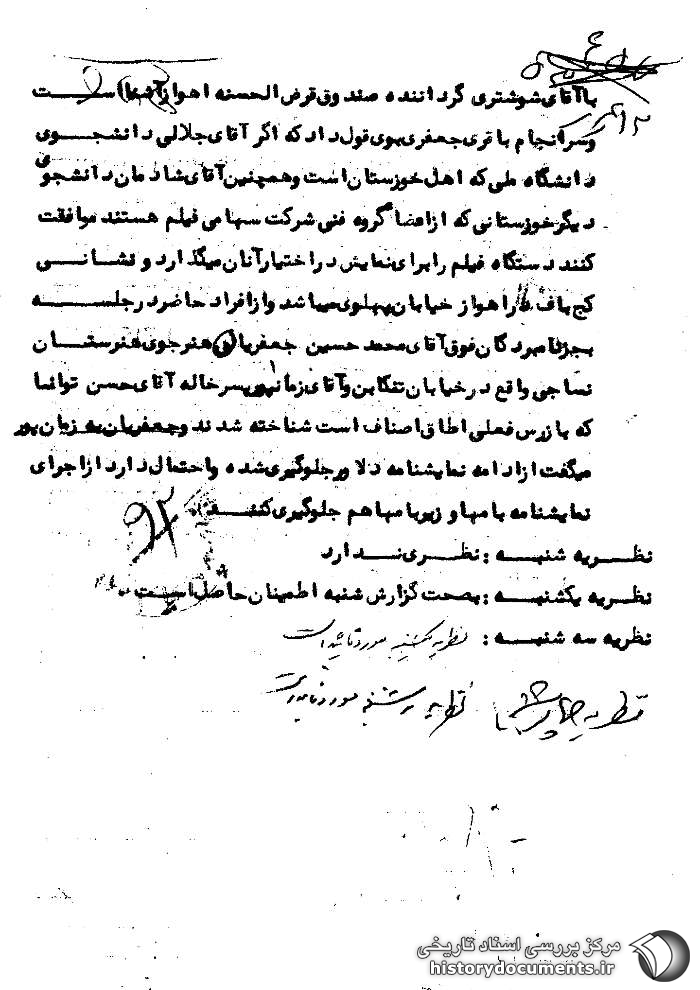 با آقای شوشتری گرداننده صندوق قرض الحسنه اهواز آشنا است
وسرانجام باقری جعفری بوی قول داد که اگر آقای جلالی دانشجوی
دانشگاه ملی که اهل خوزستان است و همچنین آقای شادمان دانشجوی
دیگر خوزستانی که از اعضا گروه فنی شرکت سهامی فیلم هستند موافقت
کنند دستگاه فیلم را برای نمایش در اختیار آنان میگذارد و نشانی
کج باف در اهواز خیابان پهلوی میباشد و از افراد حاضر در جلسه
بجز نامبردگان فوق آقای محمد حسین جعفریان هنرجوی هنرستان
نساجی واقع در خیابان تنکابن و آقای زمانپور پسرخاله آقای حسن توانا
که بازرس فعلی اطاق اصناف است شناخته شدند و جعفریان به زیان پور
میگفت از ادامه نمایشنامه دلاور جلوگیری شده و احتمال دارد از اجرای
نمایشنامه با مها و زیر با مها هم جلوگیری کنند .
نظریه شنبه : نظری ندارد
نظریه یکشنبه : بصحت گزارش شنبه اطمینان حاصل است .
نظریه سه شنبه : نظریه یکشنبه مورد تائید است
نظریه چهارشنبه نظریه سه شنبه مورد تائید است
مرکز بررسی اسناد تاریخی
historydocuments.ir